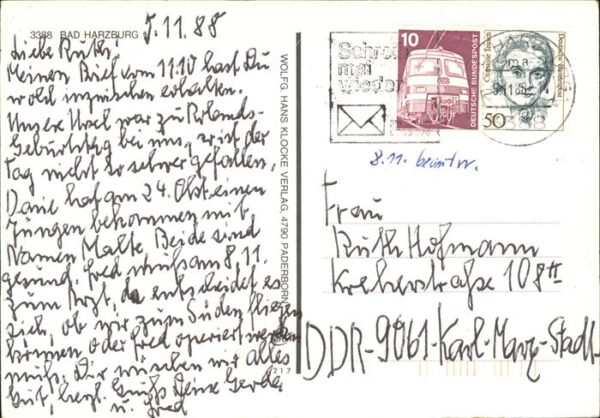 3388 BAD HARZBURG
5.11.88
Liebe Ruth!
Meinen Brief vom 11.10 hast Du
wohl inzwischen erhalten.
Unsere Ursel war zu Rolands-
Geburtstag bei uns, so ist der
Tag nicht so schwer gefallen,
hat am 24. Okt. einen
Jungen bekommen mit
Namen Malte. Beide sind
gesund. Fred muß am 8.11.
zum Arzt, da entscheidet es
sich, ob wir zum Süden fliegen
können oder Fred operiert werden
muß. Dir wünschen wir alles
Gute, herzl. Grüße Deine Gerda
u. Fred
WOLFG. HANS KLOCKE VERLAG, 4790 PADERBORN
217
Schreib
mal
wieder
10
DEUTSCHE BUNDESPOST
50
Deutsche Bundespost
3388
8.11. beantw.
Frau
Ruth Hofmann
108
DDR-9061-Karl-Marx-Stadt